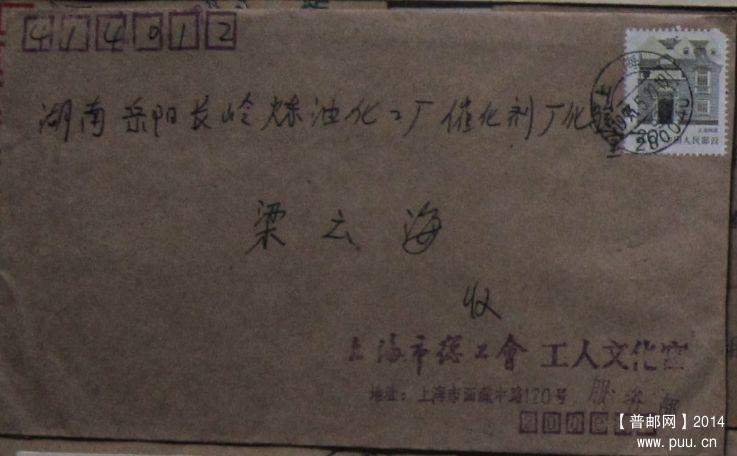 414012
湖南岳阳长岭炼油化工厂催化剂厂化验
梁云海
收
上海市总工會 工人文化宫
地址：上海市西藏中路120号
上海民居
中国人民邮政
【普邮网】2014
www.puu.cn